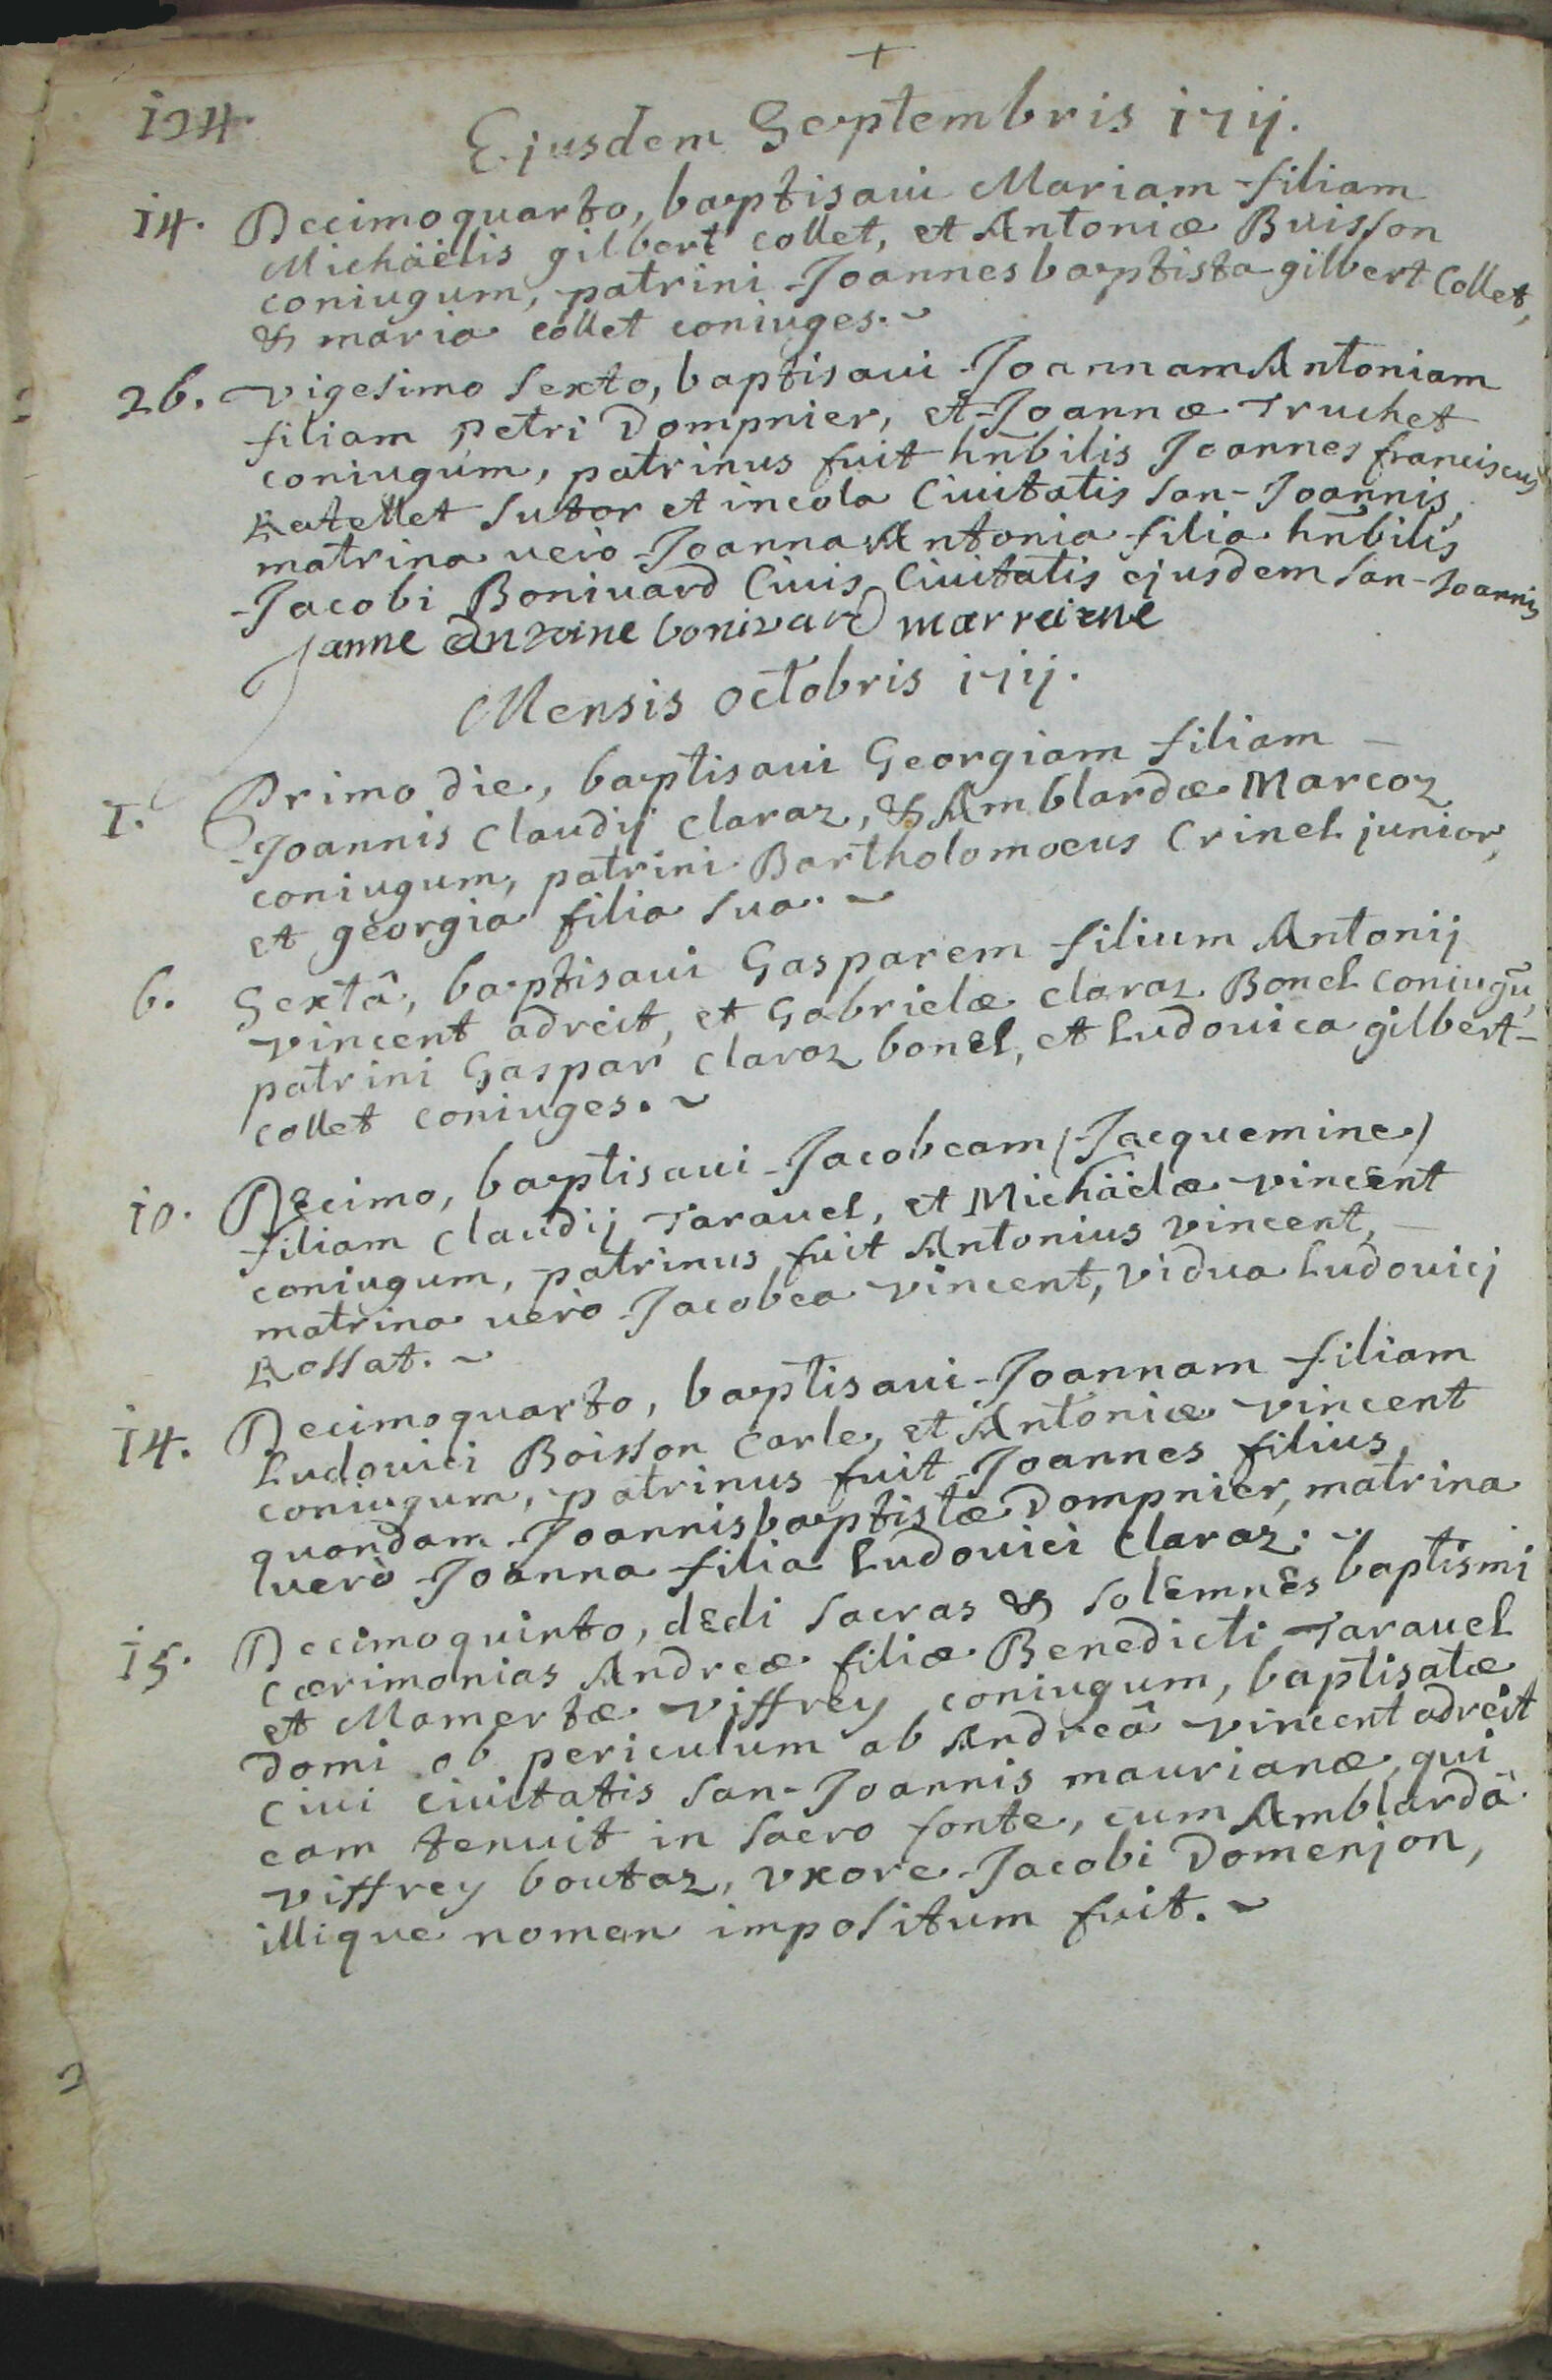 +
124
Ejusdem Septembris 1711.
14. Decimo quarto, baptisaui Mariam filiam
Michäelis gilbert collet, et Antoniæ Buisson
coniugum, patrini Joannes baptista gilbert Collet,
& maria collet coniuges.~
26. vigesimo sexto, baptisaui Joannam Antoniam
filiam Petri Dompnier, et Joannæ Truchet
coniugum, patrinus fuit hnbilis Joannes franciscus
Ratellet Sutor et incola Ciuitatis San-Joannis,
matrina uerò Joanna Antonia filia hnbilis
Jacobi Boniuard Ciuis Ciuitatis ejusdem San-Joannis
Janne antoine bonivard marreine
Mensis octobris 1711.
1. Primo die, baptisaui Georgiam filiam –
Joannis Claudij claraz, & Amblardæ Marcoz
coniugum, patrini Bartholomoeus Crinel junior,
et georgia filia sua.~
6. Sextâ, baptisaui Gasparem filium Antonij
vincent adreit, et Gabrielæ claraz Bonel coniugũ,
patrini Gaspar claraz bonel, et Ludouica gilbert-
collet coniuges.~
10. Decimo, baptisaui Jacobeam (Jacquemine)
filiam Claudij Tarauel, et Michäelæ vincent
coniugum, patrinus fuit Antonius vincent, –
matrina uerò Jacobea vincent, vidua Ludouicj
Rossat.~
14. Decimoquarto, baptisaui Joannam filiam
Ludouici Boisson carle, et Antoniæ vincent
coniugum, patrinus fuit Joannes filius
quondam Joannisbaptistæ Dompnier, matrina
uerò Joanna filia Ludouici Claraz.~
15. Decimoquinto, dedi sacras & solemnes baptismi
cærimonias Andreæ filiæ Benedicti Tarauel
et Mamertæ viffrey coniugum, baptisatæ
domi ob periculum ab Andreâ vincent adreit
ciui ciuitatis San-Joannis maurianæ, qui
eam tenuit in sacro fonte, cum Amblardâ
viffrey boutaz, vxore Jacobi Domenjon,
illique nomen impositum fuit.~